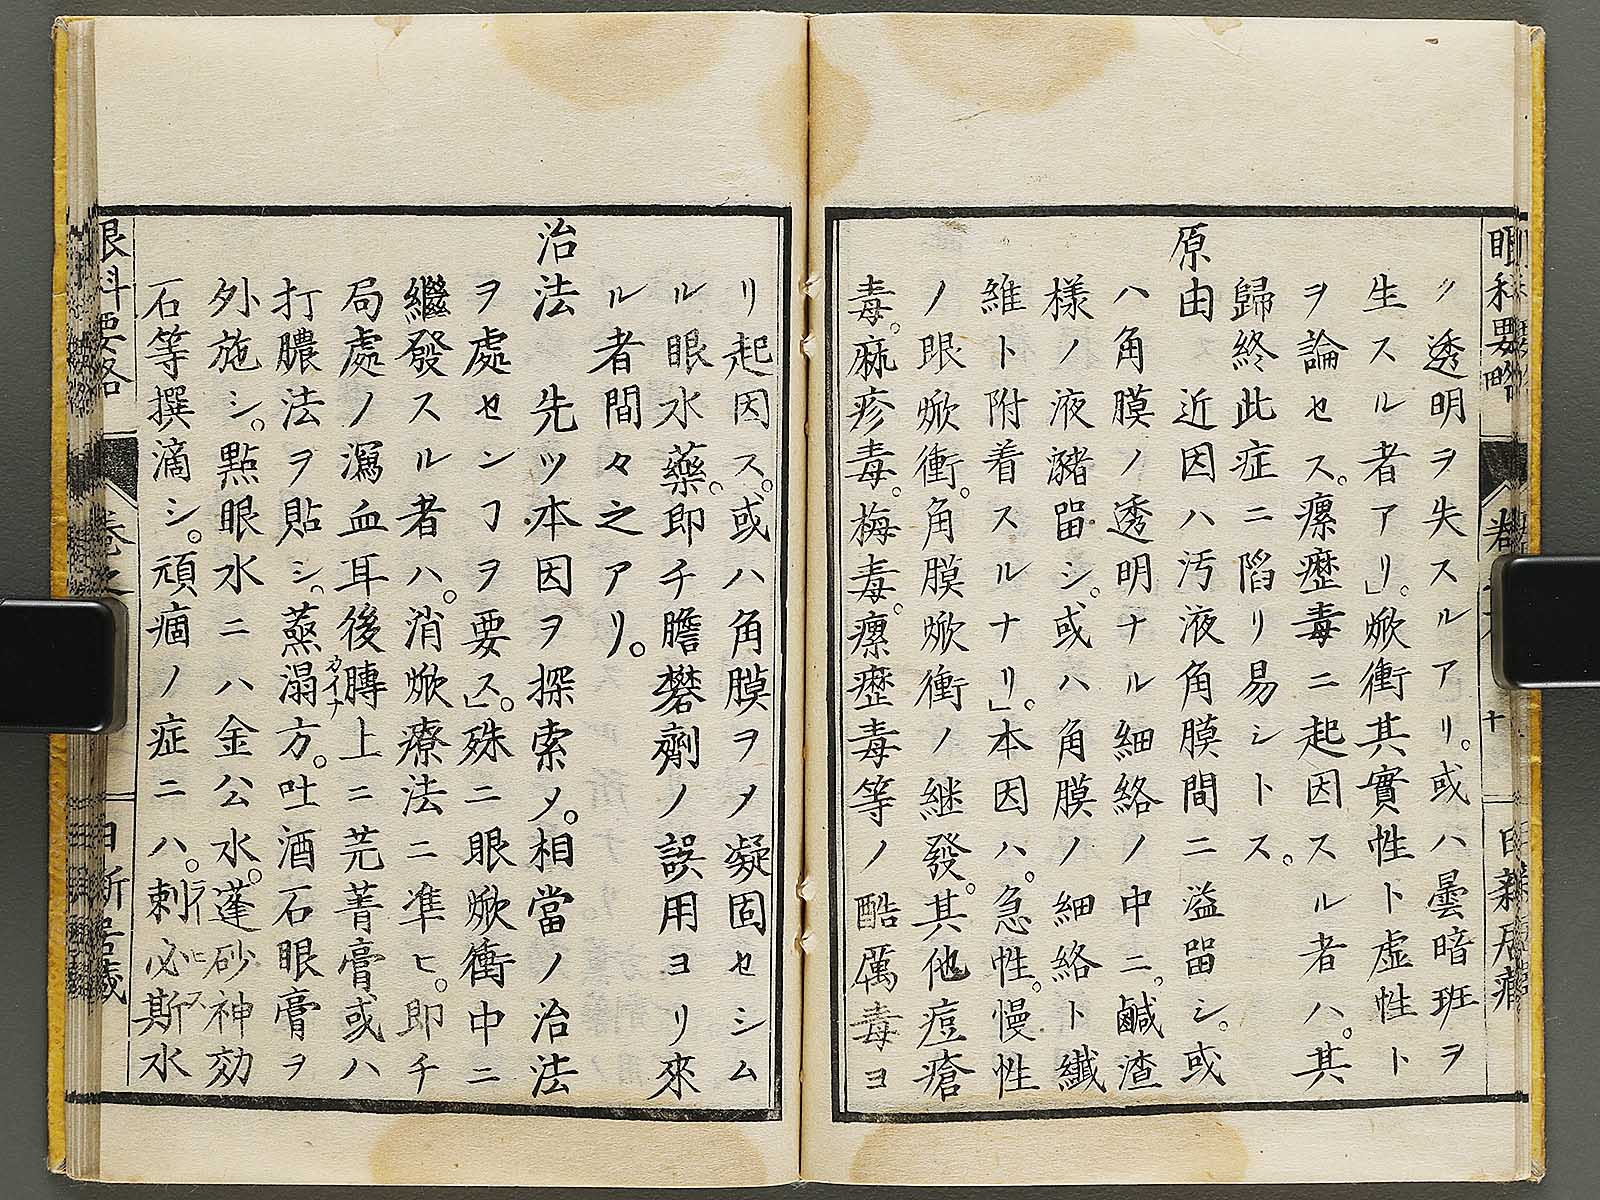 眼科要略
十
日新居藏
ク透明ヲ失スルアリ。或ハ曇暗班ヲ
生スル者アリ」焮衝其實性ト虛性ト
ヲ論セス。瘰癧毒ニ起因スル者ハ。其
歸終此症ニ陷リ易シトス。
原由 近因ハ汚液角膜間ニ溢畱シ。或
ハ角膜ノ透明ナル細絡ノ中ニ。鹹渣
樣ノ液瀦畱シ。或ハ角膜ノ細絡ト纎
維ト附着スルナリ」本因ハ。急性。慢性
ノ眼焮衝。角膜焮衝ノ継發。其他痘瘡
毒。麻疹毒。梅毒。瘰癧毒等ノ酷厲毒ヨ
リ起因ス。或ハ角膜ヲメ凝固セシム
ル眼水藥。即チ膽礬劑ノ誤用ヨリ來
ル者間々之アリ。
治法 先ツ本因ヲ探索メ。相當ノ治法
ヲ處センヿヲ要ス」。殊ニ眼焮衝中ニ
繼發スル者ハ。消焮療法ニ凖ヒ。即チ
局處ノ瀉血耳後膊上ニ芫菁膏或ハ
カイナ
打膿法ヲ貼シ。蒸溻方。吐酒石眼膏ヲ
外施シ。點眼水ニハ金公水。蓬砂神効
石等撰滴シ。頑痼ノ症ニハ。剌必斯水
ラーヒス
眼科要略
卷之
日新居藏